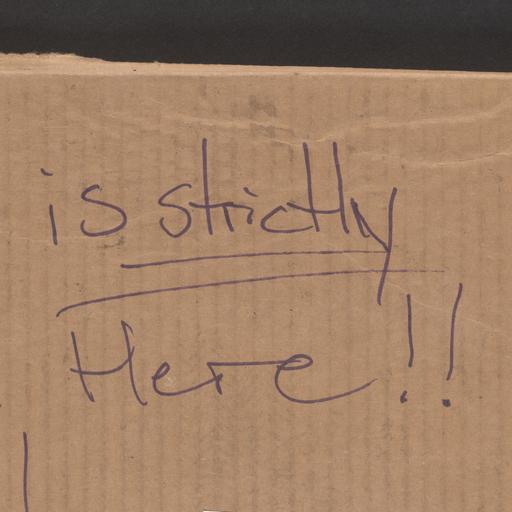 is strictly
Here!!